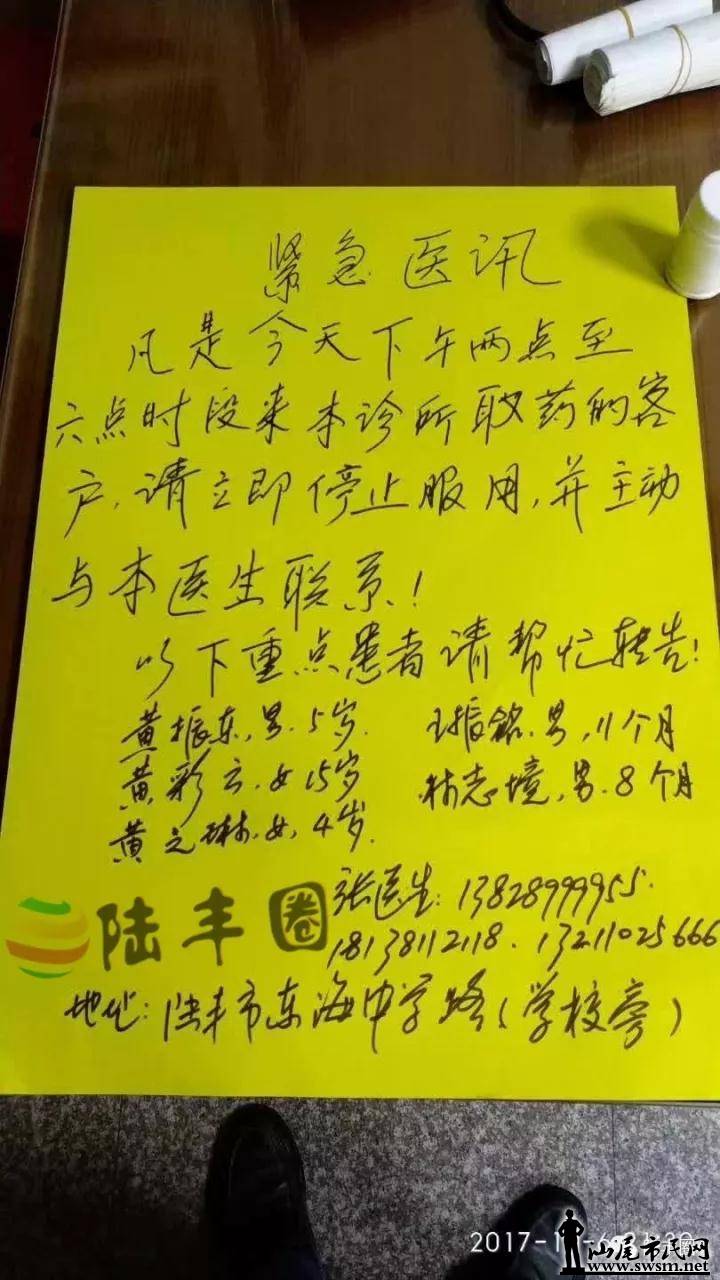 紧急医讯
凡是今天下午两点至
六点时段来本诊所取药的客
户,请立即停止服用,并主动
与本医生联系!
以下重点患者请帮忙转告!
黄振东,男.5岁. 王振铭.男,11个月
黄彩云.女15岁 林志境,男.8个月
黄之琳.女,4岁.
陆丰圈
张医生:13828999955.
18138112118.13211025666
地址:陆丰市东海中学路(学校旁)
2017-1
汕尾市民网
www.swsm.net